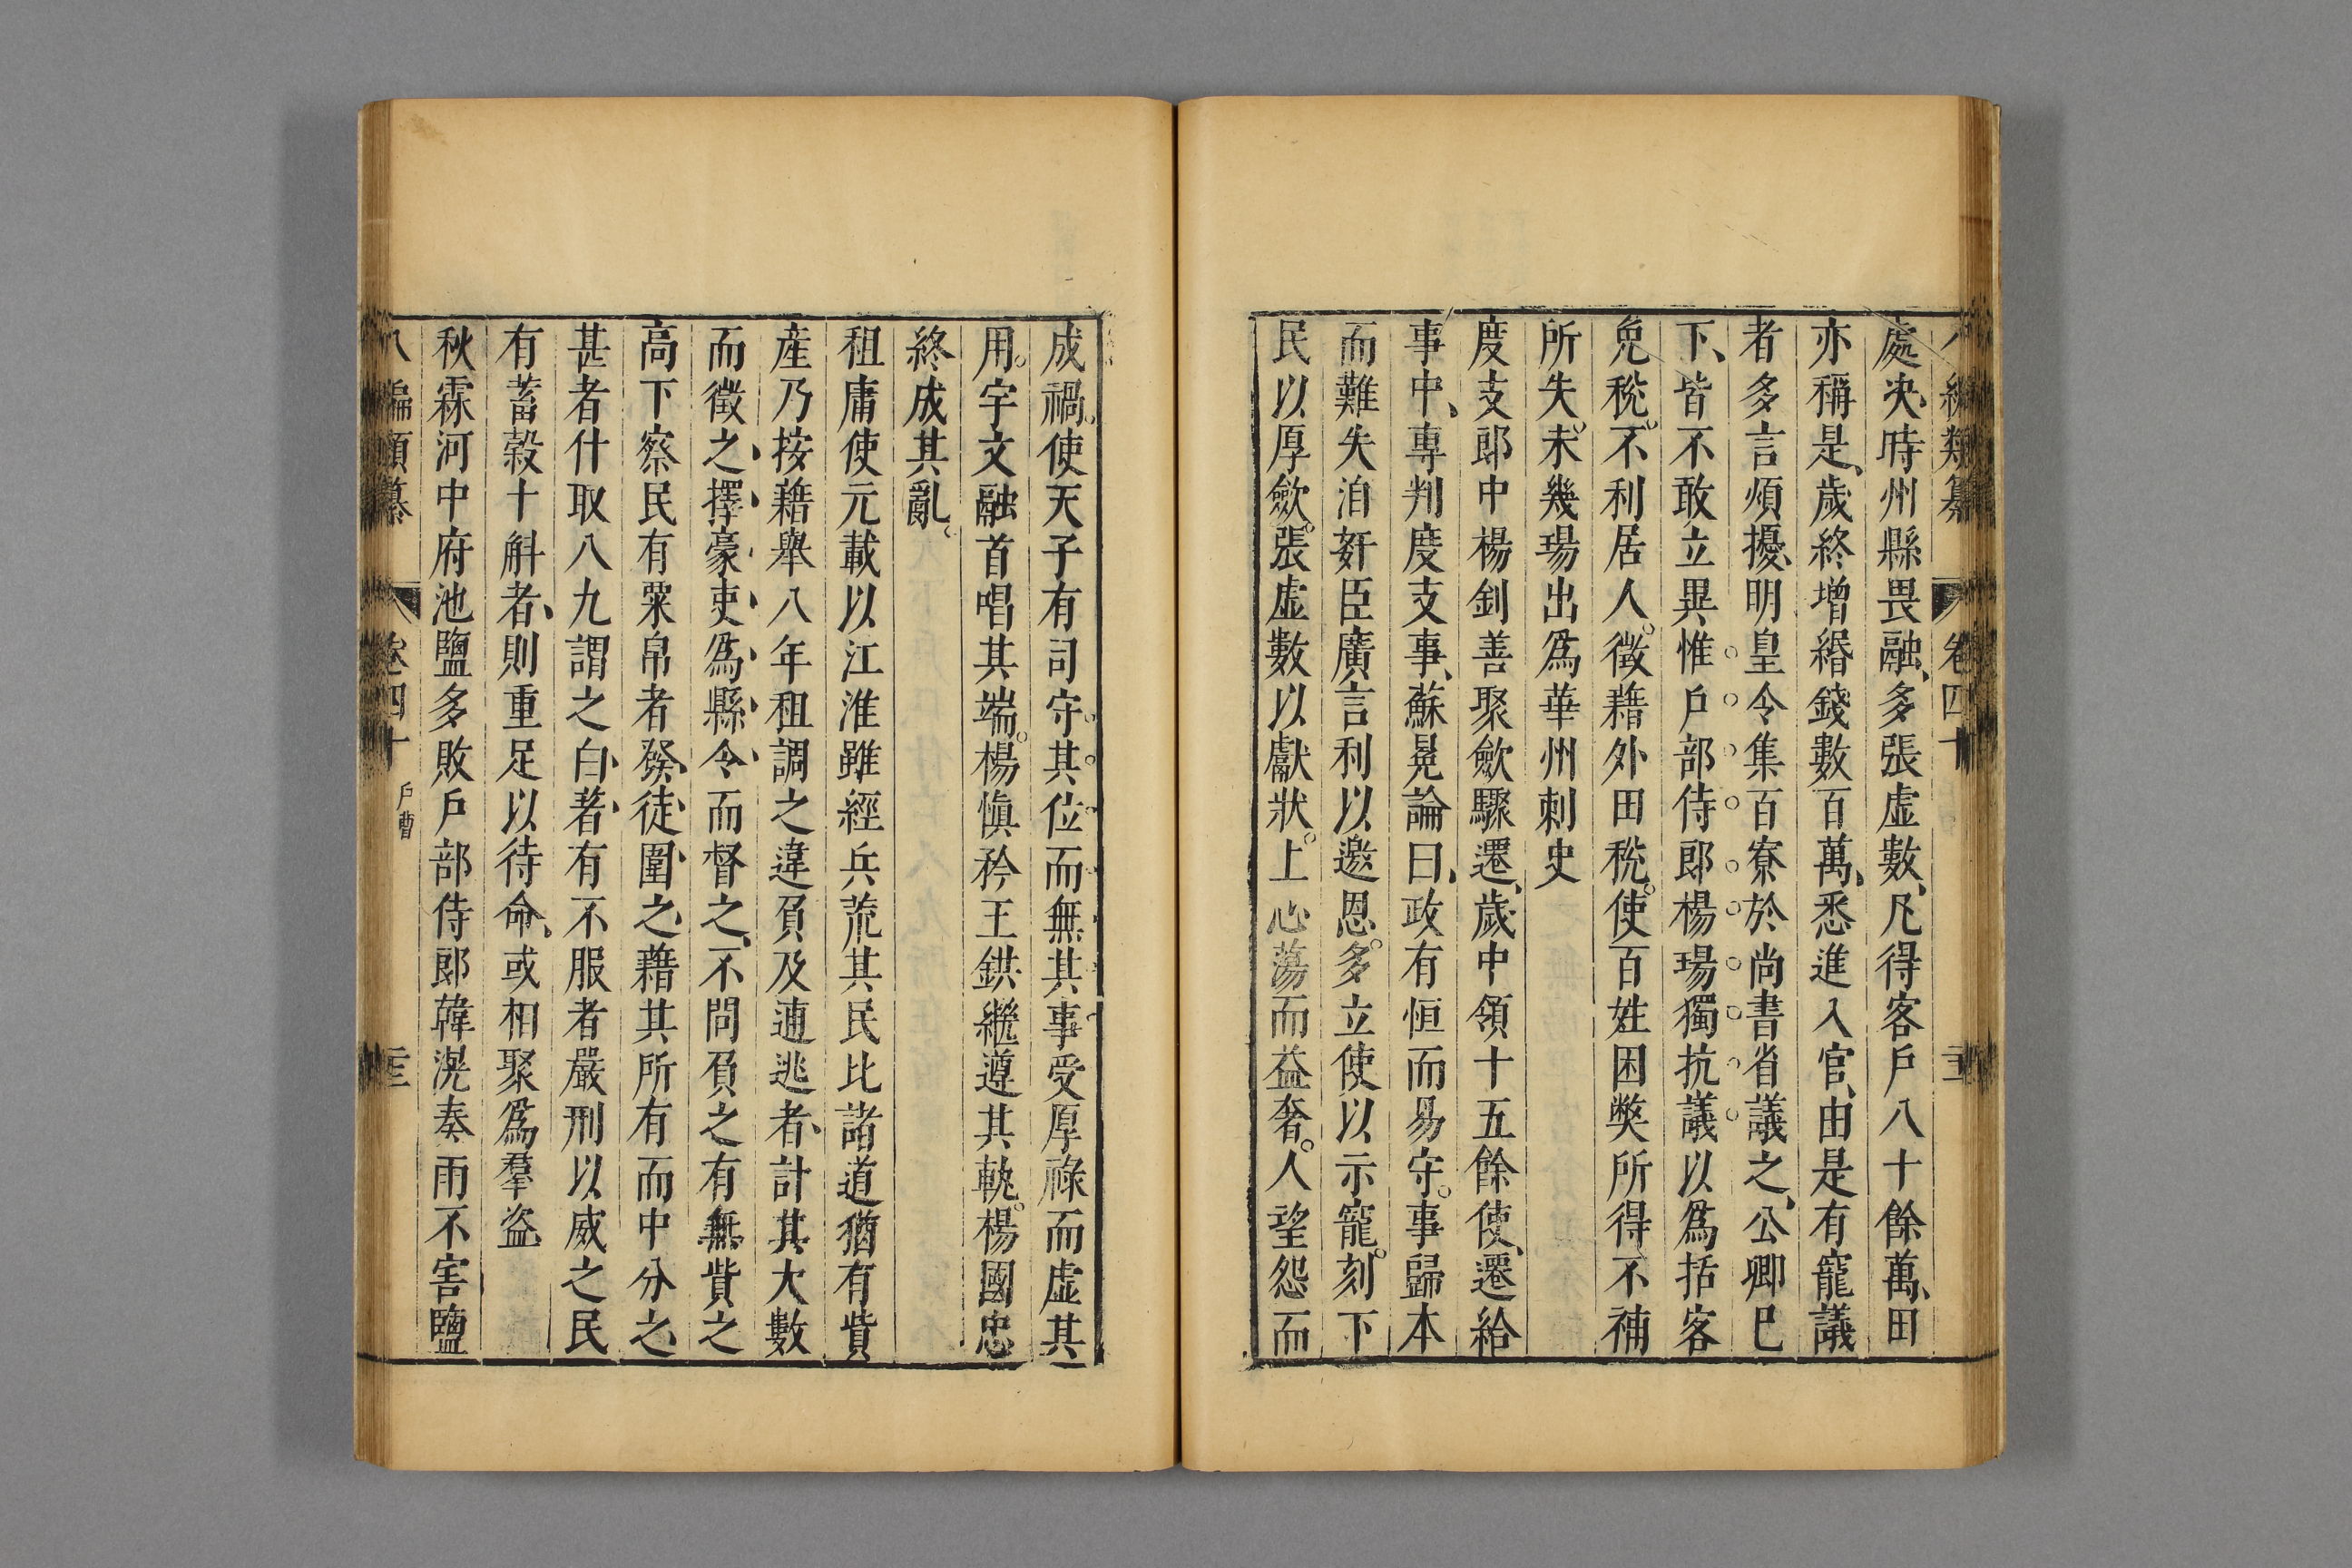 八編類纂 卷四十 二十二
處决時州縣畏融多張虛數凡得客戶八十餘萬田
亦稱是歲終增緡錢數百萬悉進入官由是有寵議
者多言煩擾明皇令集百寮於尚書省議之公卿巳
下皆不敢立異惟戶部侍郎楊瑒獨抗議以爲括客
免稅不利居人徵藉外田稅使百姓困獘所得不補
所失未幾瑒出爲華州刺史
度支郎中楊釗善聚歛驟遷歲中領十五餘使遷給
事中專判度支事蘇冕論曰政有恒而易守事歸本
而難失洎姧臣廣言利以邀恩多立使以示寵刻下
民以厚歛張虛數以獻狀上心蕩而益奢人望怨而
成禍使天子有司守其位而無其事受厚祿而虛其
用宇文融首唱其端楊愼矜王鉷繼遵其軌楊國忠
終成其亂
租庸使元載以江淮雖經兵荒其民比諸道猶有貲
產乃按藉舉八年租調之違負及逋逃者計其大數
而徵之擇豪吏爲縣令而督之不問負之有無貲之
高下察民有粟帛者發徒圍之藉其所有而中分之
甚者什取八九謂之白著有不服者嚴刑以威之民
有蓄穀十斛者則重足以待命或相聚爲羣盗
秋霖河中府池鹽多敗戶部侍郎韓滉奏雨不害鹽
八編類纂 卷四十 戶曹 二十三